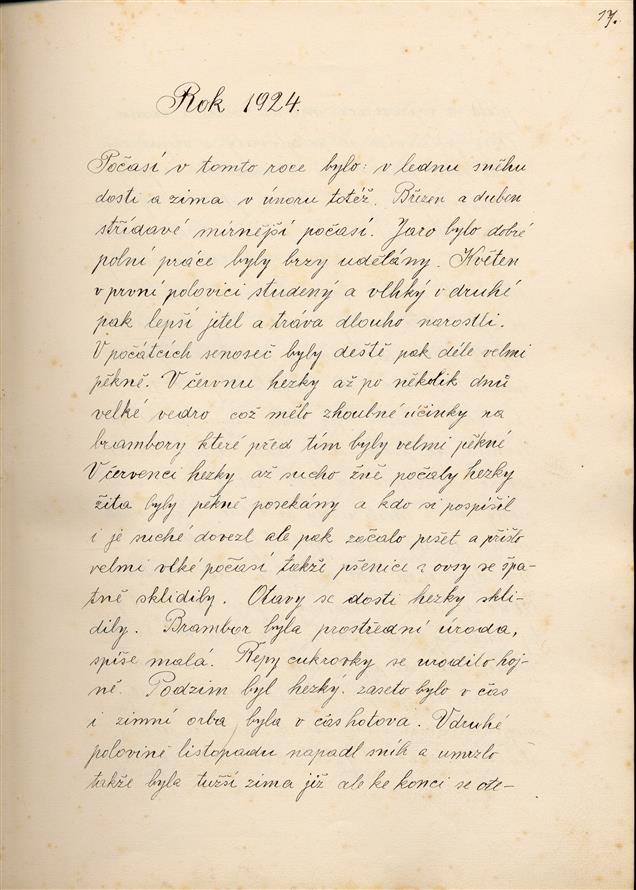 17.
Rok 1924.
Počasí v tomto roce bylo: v lednu sněhu
dosti a zima v únoru totéž. Březen a duben
střídavé mírnější počasí. Jaro bylo dobré
polní práce byly brzy udělány. Květen
v první polovici studený a vlhký v druhé
pak lepší jetel a tráva dlouho narostli.
V počátcích senoseč byly deště pak déle velmi
pěkně. V červnu hezky až po několik dnů
velké vedro což mělo zhoubné účinky na
brambory které před tím byly velmi pěkné
V červenci hezky až sucho žně počaly hezky
žita byly pěkně posekány a kdo si pospíšil
i je suché dovezl ale pak začalo pršet a přišlo
velmi vlké počasí takže pšenice a ovsy se špa-
tně sklidily. Otavy se dosti hezky skli-
dily. Brambor byla prostřední úroda,
spíše malá. Řepy cukrovky se urodilo hoj-
ně. Podzim byl hezký. zaseto bylo v čas
i zimní orba byla v čas hotova. V druhé
polovině listopadu napadl sníh a umrzlo
takže byla tužší zima již ale ke konci se ote-